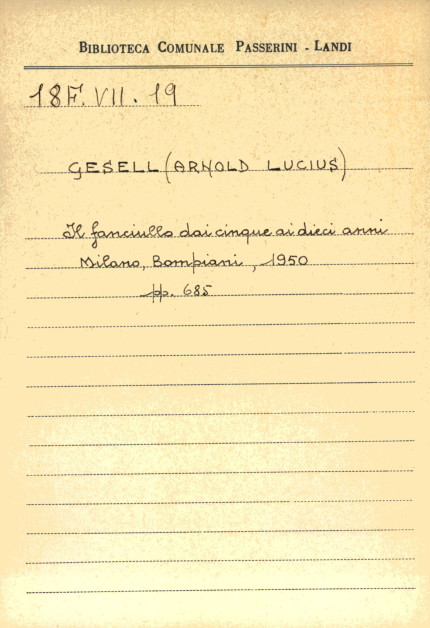 BIBLIOTECA COMUNALE PASSERINI - LANDI
18F. VII. 19
GESELL (ARNOLD LUCIUS)
Il fanciullo dai cinque ai dieci anni
Milano, Bompiani, 1950
pp. 685